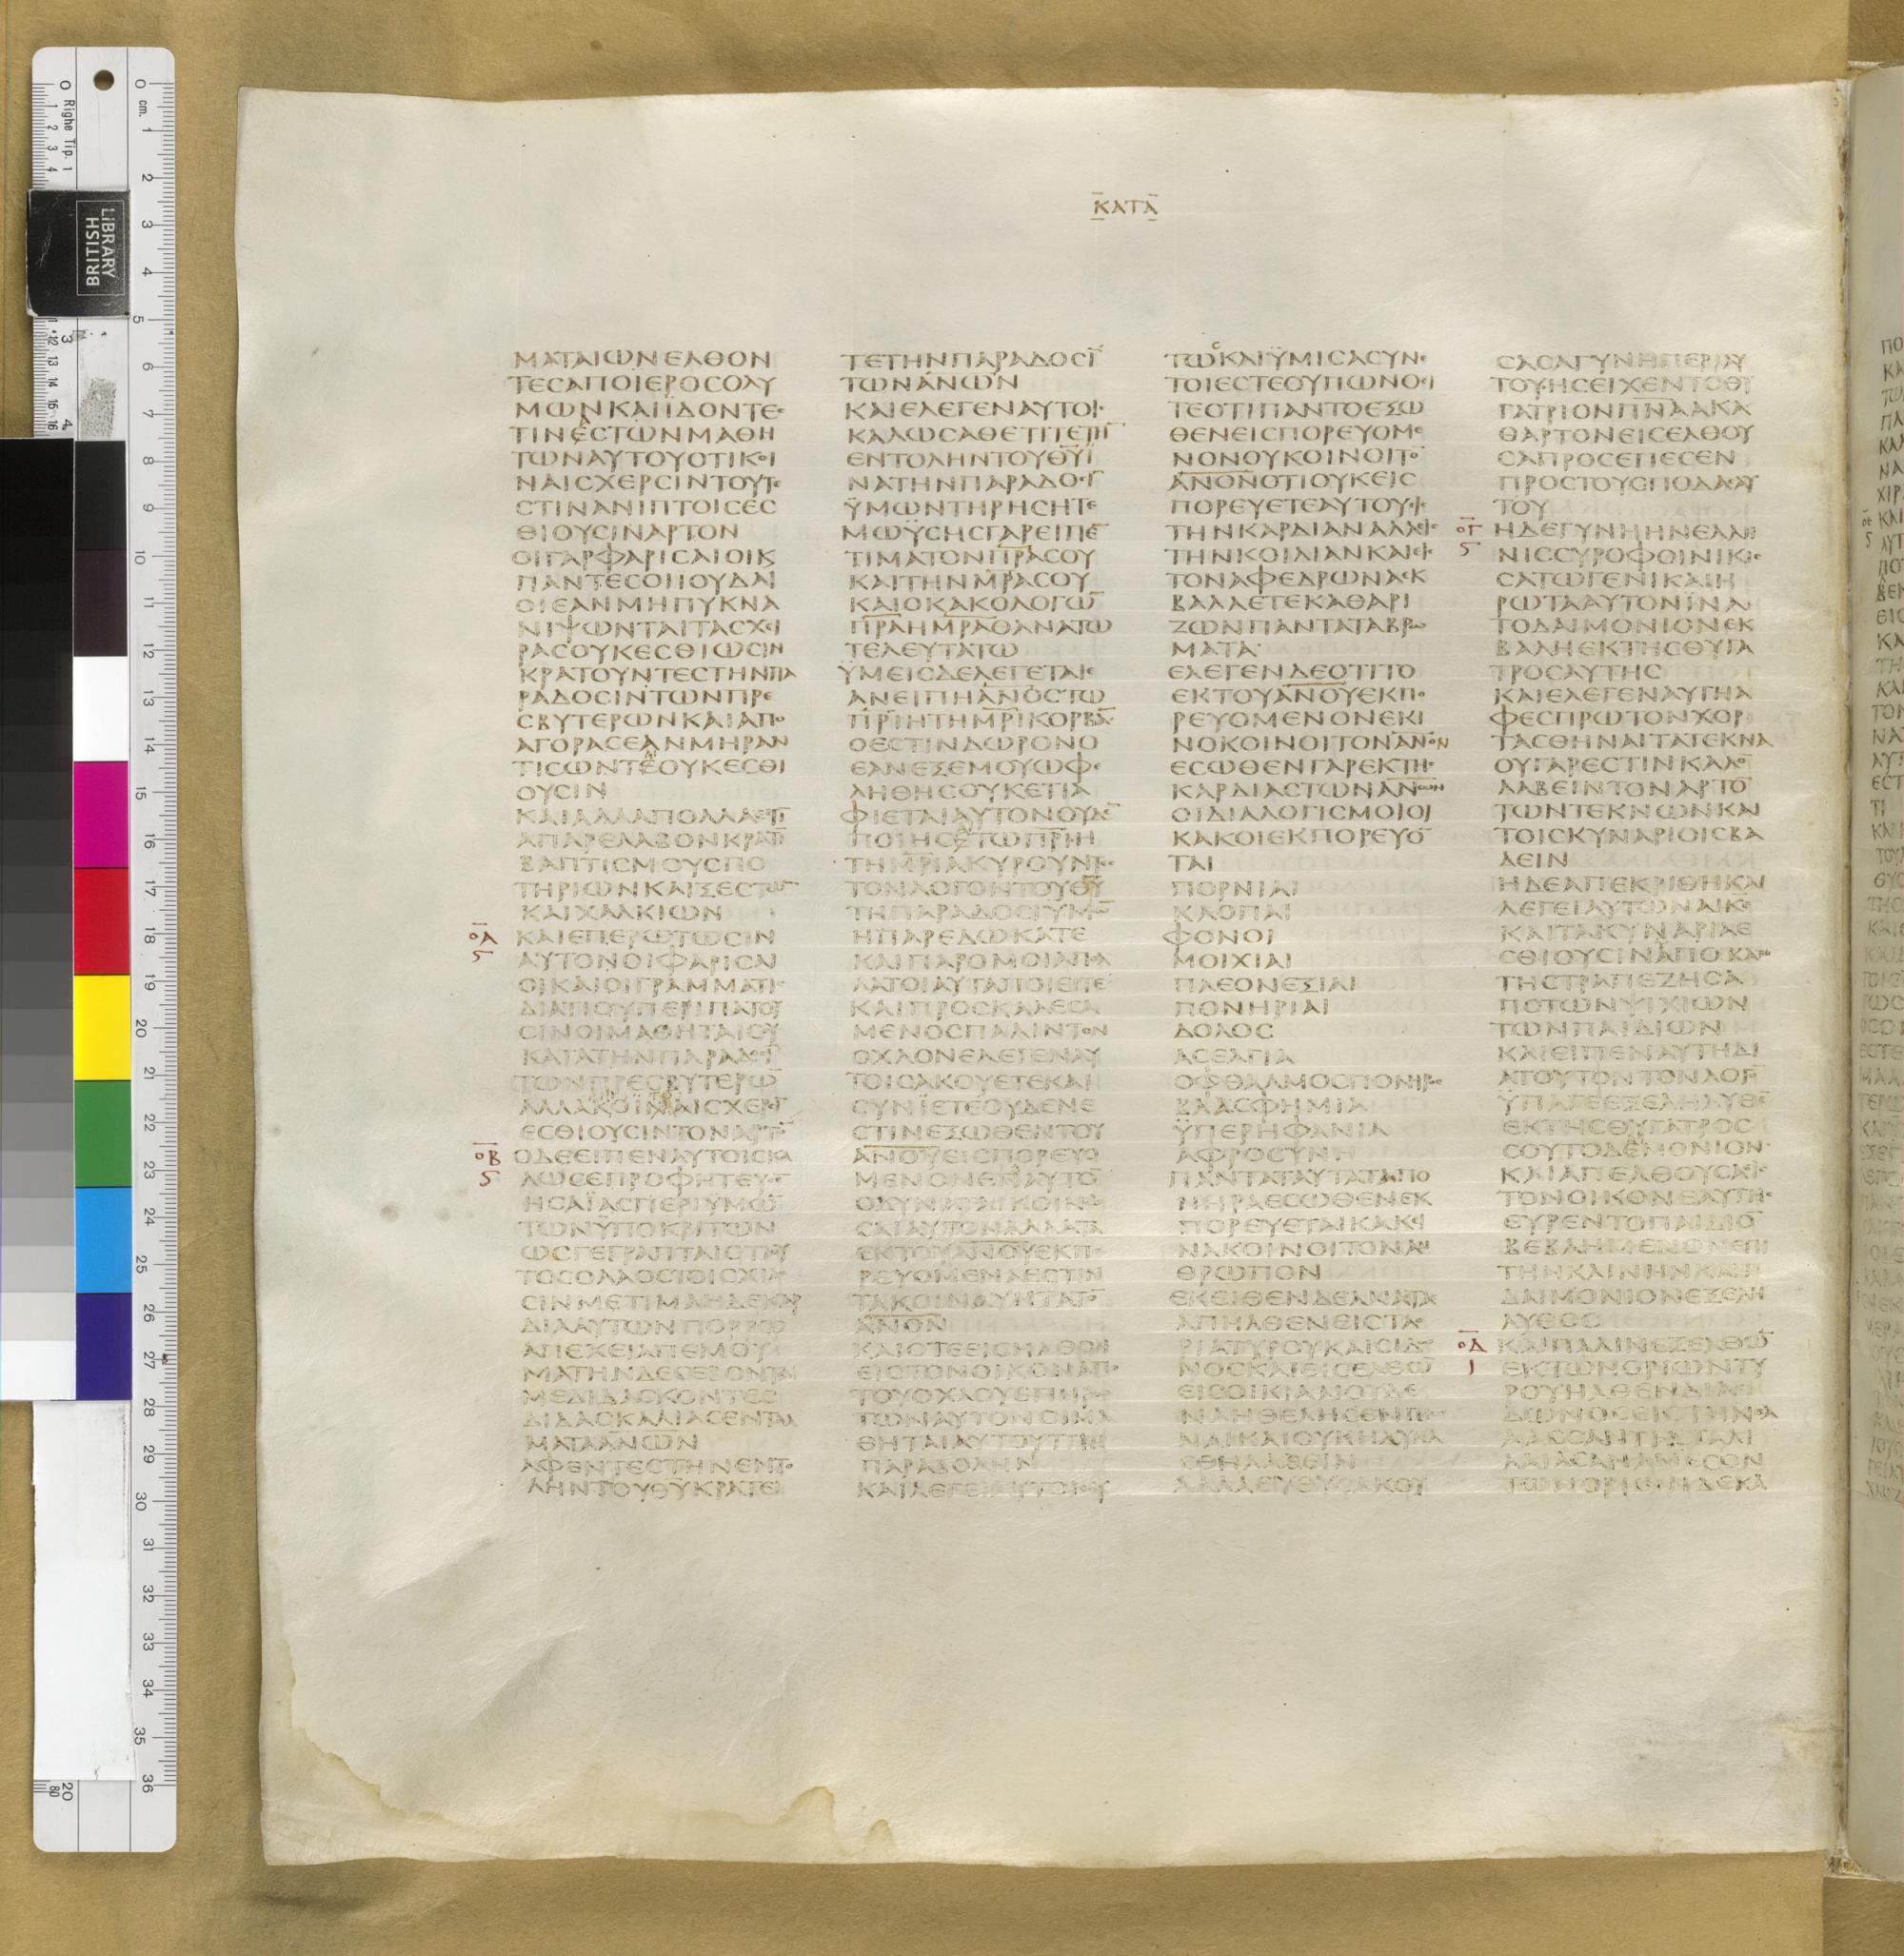 ΚΑΤΑ
ΜΑΤΑΙΩΝΕΛΘΟΝ
ΤΕСΑΠΟΪΕΡΟСΟΛΥ
ΜΩΝΚΑΙΪΔΟΝΤΕС
ΤΙΝΕСΤΩΝΜΑΘΗ
ΤΩΝΑΥΤΟΥΟΤΙΚΟΙ
ΝΑΙСΧΕΡСΙΝΤΟΥΤΕ
СΤΙΝΑΝΙΠΤΟΙСΕС
ΘΙΟΥСΙΝΑΡΤΟΝ
ΟΙΓΑΡΦΑΡΙСΑΙΟΙΚ
ΠΑΝΤΕСΟΙΙΟΥΔΑΙ
ΟΙΕΑΝΜΗΠΥΚΝΑ
ΝΙΨΩΝΤΑΙΤΑСΧΕΙ
ΡΑСΟΥΚΕСΘΙΩСΙΝ
ΚΡΑΤΟΥΝΤΕСΤΗΝΠΑ
ΡΑΔΟСΙΝΤΩΝΠΡΕ
СΒΥΤΕΡΩΝΚΑΙΑΠΟ
ΑΓΟΡΑСΕΑΝΜΗΡΑΝ
ΤΙСΩΝΤΕΟΥΚΕСΘΙ
ΟΥСΙΝ
ΚΑΙΑΛΛΑΠΟΛΛΑΕСΤΙ
ΑΠΑΡΕΛΑΒΟΝΚΡΑΤΙ
ΒΑΠΤΙСΜΟΥСΠΟ
ΤΗΡΙΩΝΚΑΙΞΕСΤΩΝ
ΚΑΙΧΑΛΚΙΩΝ
ΟΑ
Ϛ
ΚΑΙΕΠΕΡΩΤΩСΙΝ
ΑΥΤΟΝΟΙΦΑΡΙСΑΙ
ΟΙΚΑΙΟΙΓΡΑΜΜΑΤΙС
ΔΙΑΤΙΟΥΠΕΡΙΠΑΤΟΥ
СΙΝΟΙΜΑΘΗΤΑΙСΟΥ
ΚΑΤΑΤΗΝΠΑΡΑΔΟСΙ
ΤΩΝΠΡΕСΒΥΤΕΡΩ̅
ΑΛΛΑΚΟΙΝΑΙСΧΕΡСΙ
ΕСΘΙΟΥСΙΝΤΟΝΑΡΤΟ̅
ΟΒ
Ϛ
ΟΔΕΕΙΠΕΝΑΥΤΟΙСΚΑ
ΛΩСΕΠΡΟΦΗΤΕΥСΕ
ΗСΑΪΑСΠΕΡΙΫΜΩ̅
ΤΩΝΫΠΟΚΡΙΤΩΝ
ΩСΓΕΓΡΑΠΤΑΙΟΤΙΟΥ
ΤΟСΟΛΑΟСΤΟΙСΧΙΛΕ
СΙΝΜΕΤΙΜΑΗΔΕΚΑΡ
ΔΙΑΑΥΤΩΝΠΟΡΡΩ
ΑΠΕΧΕΙΑΠΕΜΟΥ
ΜΑΤΗΝΔΕСΕΒΟΝΤΑΙ
ΜΕΔΙΔΑСΚΟΝΤΕС
ΔΙΔΑСΚΑΛΙΑСΕΝΤΑΛ
ΜΑΤΑΑ̅Ν̅Ω̅Ν̅
ΑΦΕΝΤΕСΤΗΝΕΝΤΟ
ΛΗΝΤΟΥΘ̅Υ̅ΚΡΑΤΕΙ
ΤΕΤΗΝΠΑΡΑΔΟСΙ̅
ΤΩΝΑ̅Ν̅Ω̅Ν̅
ΚΑΙΕΛΕΓΕΝΑΥΤΟΙС
ΚΑΛΩСΑΘΕΤΙΤΕΤΗ̅
ΕΝΤΟΛΗΝΤΟΥΘ̅Υ̅Ϊ
ΝΑΤΗΝΠΑΡΑΔΟСΙ̅
ΫΜΩΝΤΗΡΗСΗΤΕ
ΜΩΫСΗСΓΑΡΕΙΠΕ̅
ΤΙΜΑΤΟΝΠ̅Ρ̅Α̅СΟΥ
ΚΑΙΤΗΝΜ̅Ρ̅Α̅СΟΥ
ΚΑΙΟΚΑΚΟΛΟΓΩ̅
Π̅Ρ̅Α̅ΗΜ̅Ρ̅Α̅ΘΑΝΑΤΩ
ΤΕΛΕΥΤΑΤΩ
ΫΜΕΙСΔΕΛΕΓΕΤΑΙΕ
ΑΝΕΙΠΗΑ̅Ν̅Ο̅С̅ΤΩ
Π̅Ρ̅Ι̅ΗΤΗΜ̅Ρ̅Ι̅ΚΟΡΒΑ̅
ΟΕСΤΙΝΔΩΡΟΝΟ
ΕΑΝΕΞΕΜΟΥΩΦΕ
ΛΗΘΗСΟΥΚΕΤΙΑ
ΦΙΕΤΑΙΑΥΤΟΝΟΥΔΕ̅
ΠΟΙΗСΕΤΩΠ̅Ρ̅Ι̅Η
ΤΗΜ̅Ρ̅Ι̅ΑΚΥΡΟΥΝΤΕС
ΤΟΝΛΟΓΟΝΤΟΥΘ̅Υ̅
ΤΗΠΑΡΑΔΟСΙΫΜΩ̅
ΗΠΑΡΕΔΩΚΑΤΕ
ΚΑΙΠΑΡΟΜΟΙΑΠΟΛ
ΛΑΤΟΙΑΥΤΑΠΟΙΕΙΤΕ
ΚΑΙΠΡΟСΚΑΛΕСΑ
ΜΕΝΟСΠΑΛΙΝΤΟΝ
ΟΧΛΟΝΕΛΕΓΕΝΑΥ
ΤΟΙСΑΚΟΥΕΤΕΚΑΙ
СΥΝΪΕΤΕΟΥΔΕΝΕ
СΤΙΝΕΞΩΘΕΝΤΟΥ
Α̅Ν̅Ο̅Υ̅ΕΙСΠΟΡΕΥΟ
ΜΕΝΟΝΕΙСΑΥΤΟ̅
ΟΔΥΝΑΤΑΙΚΟΙΝΩ
СΑΙΑΥΤΟΝΑΛΛΑΤΑ
ΕΚΤΟΥΑ̅Ν̅Ο̅Υ̅ΕΚΠΟ
ΡΕΥΟΜΕΝΑΕСΤΙΝ
ΤΑΚΟΙΝΟΥΝΤΑΤΟ̅
Α̅Ν̅Ο̅Ν̅
ΚΑΙΟΤΕΕΙСΗΛΘΟΝ
ΕΙСΤΟΝΟΙΚΟΝΑΠΟ
ΤΟΥΟΧΛΟΥΕΠΗΡΩ
ΤΩΝΑΥΤΟΝΟΙΜΑ
ΘΗΤΑΙΑΥΤΟΥΤΗΝ
ΠΑΡΑΒΟΛΗΝ
ΚΑΙΛΕΓΕΙΑΥΤΟΙСΟΥ
ΤΩСΚΑΙΫΜΙСΑСΥΝΕ
ΤΟΙΕСΤΕΟΥΠΩΝΟΕΙ
ΤΕΟΤΙΠΑΝΤΟΕΞΩ
ΘΕΝΕΙСΠΟΡΕΥΟΜΕ
ΝΟΝΟΥΚΟΙΝΟΙΤΟ̅
Α̅Ν̅Ο̅Ν̅ΟΤΙΟΥΚΕΙС
ΠΟΡΕΥΕΤΕΑΥΤΟΥΕΙС
ΤΗΝΚΑΡΔΙΑΝΑΛΛΕΙС
ΤΗΝΚΟΙΛΙΑΝΚΑΙΕΙС
ΤΟΝΑΦΕΔΡΩΝΑΕΚ
ΒΑΛΛΕΤΕΚΑΘΑΡΙ
ΖΩΝΠΑΝΤΑΤΑΒΡΩ
ΜΑΤΑ
ΕΛΕΓΕΝΔΕΟΤΙΤΟ
ΕΚΤΟΥΑ̅Ν̅Ο̅Υ̅ΕΚΠΟ
ΡΕΥΟΜΕΝΟΝΕΚΙ
ΝΟΚΟΙΝΟΙΤΟΝΑ̅Ν̅Ο̅Ν̅
ΕСΩΘΕΝΓΑΡΕΚΤΗС
ΚΑΡΔΙΑСΤΩΝΑ̅Ν̅Ω̅Ν̅
ΟΙΔΙΑΛΟΓΙСΜΟΙΟΙ
ΚΑΚΟΙΕΚΠΟΡΕΥΟ̅
ΤΑΙ
ΠΟΡΝΙΑΙ
ΚΛΟΠΑΙ
ΦΟΝΟΙ
ΜΟΙΧΙΑΙ
ΠΛΕΟΝΕΞΙΑΙ
ΠΟΝΗΡΙΑΙ
ΔΟΛΟС
ΑСΕΛΓΙΑ
ΟΦΘΑΛΜΟСΠΟΝΗΡΟС
ΒΛΑСΦΗΜΙΑ
ΫΠΕΡΗΦΑΝΙΑ
ΑΦΡΟСΥΝΗ
ΠΑΝΤΑΤΑΥΤΑΤΑΠΟ
ΝΗΡΑΕСΩΘΕΝΕΚ
ΠΟΡΕΥΕΤΑΙΚΑΚΕΙ
ΝΑΚΟΙΝΟΙΤΟΝΑΝ
ΘΡΩΠΟΝ
ΕΚΕΙΘΕΝΔΕΑΝΑСΤΑС
ΑΠΗΛΘΕΝΕΙСΤΑΟ
ΡΙΑΤΥΡΟΥΚΑΙСΙΔΩ
ΝΟСΚΑΙΕΙСΕΛΘΩ̅
ΕΙСΟΙΚΙΑΝΟΥΔΕ
ΝΑΗΘΕΛΗСΕΝΓΝΩ
ΝΑΙΚΑΙΟΥΚΗΔΥΝΑ
СΘΗΛΑΘΕΙΝ
ΑΛΛΕΥΘΥСΑΚΟΥ
СΑСΑΓΥΝΗΠΕΡΙΑΥ
ΤΟΥΗСΕΙΧΕΝΤΟΘΥ
ΓΑΤΡΙΟΝΠ̅Ν̅Α̅ΑΚΑ
ΘΑΡΤΟΝΕΙСΕΛΘΟΥ
СΑΠΡΟСΕΠΕСΕΝ
ΠΡΟСΤΟΥСΠΟΔΑСΑΥ
ΤΟΥ
ΟΓ
Ϛ
ΗΔΕΓΥΝΗΗΝΕΛΛΗ
ΝΙССΥΡΟΦΟΙΝΙΚΙС
СΑΤΩΓΕΝΙΚΑΙΗ
ΡΩΤΑΑΥΤΟΝΪΝΑ
ΤΟΔΑΙΜΟΝΙΟΝΕΚ
ΒΑΛΗΕΚΤΗСΘΥΓΑ
ΤΡΟСΑΥΤΗС
ΚΑΙΕΛΕΓΕΝΑΥΤΗΑ
ΦΕСΠΡΩΤΟΝΧΟΡ
ΤΑСΘΗΝΑΙΤΑΤΕΚΝΑ
ΟΥΓΑΡΕСΤΙΝΚΑΛΟ̅
ΛΑΒΕΙΝΤΟΝΑΡΤΟ̅
ΤΩΝΤΕΚΝΩΝΚΑΙ
ΤΟΙСΚΥΝΑΡΙΟΙСΒΑ
ΛΕΙΝ
ΗΔΕΑΠΕΚΡΙΘΗΚΑΙ
ΛΕΓΕΙΑΥΤΩΝΑΙΚΕ
ΚΑΙΤΑΚΥΝΑΡΙΑΕ
СΘΙΟΥСΙΝΑΠΟΚΑΤΩ
ΤΗСΤΡΑΠΕΖΗСΑ
ΠΟΤΩΝΨΙΧΙΩΝ
ΤΩΝΠΑΙΔΙΩΝ
ΚΑΙΕΙΠΕΝΑΥΤΗΔΙ
ΑΤΟΥΤΟΝΤΟΝΛΟΓΟ̅
ΫΠΑΓΕΕΞΕΛΗΛΥΘΕ̅
ΕΚΤΗСΘΥΓΑΤΡΟС
СΟΥΤΟΔΕΜΟΝΙΟΝ
ΚΑΙΑΠΕΛΘΟΥСΑΕΙС
ΤΟΝΟΙΚΟΝΕΑΥΤΗС
ΕΥΡΕΝΤΟΠΑΙΔΙΟ̅
ΒΕΒΛΗΜΕΝΟΝΕΠΙ
ΤΗΝΚΛΙΝΗΝΚΑΙΤΟ
ΔΑΙΜΟΝΙΟΝΕΞΕΛΗ
ΛΥΘΟС
ΟΔ
Ι
ΚΑΙΠΑΛΙΝΕΞΕΛΘΩ̅
ΕΚΤΩΝΟΡΙΩΝΤΥ
ΡΟΥΗΛΘΕΝΔΙΑСΙ
ΔΩΝΟСΕΙСΤΗΝΘΑ
ΛΑССΑΝΤΗСΓΑΛΙ
ΛΑΙΑСΑΝΑΜΕСΟΝ
ΤΩΝΟΡΙΩΝΔΕΚΑ